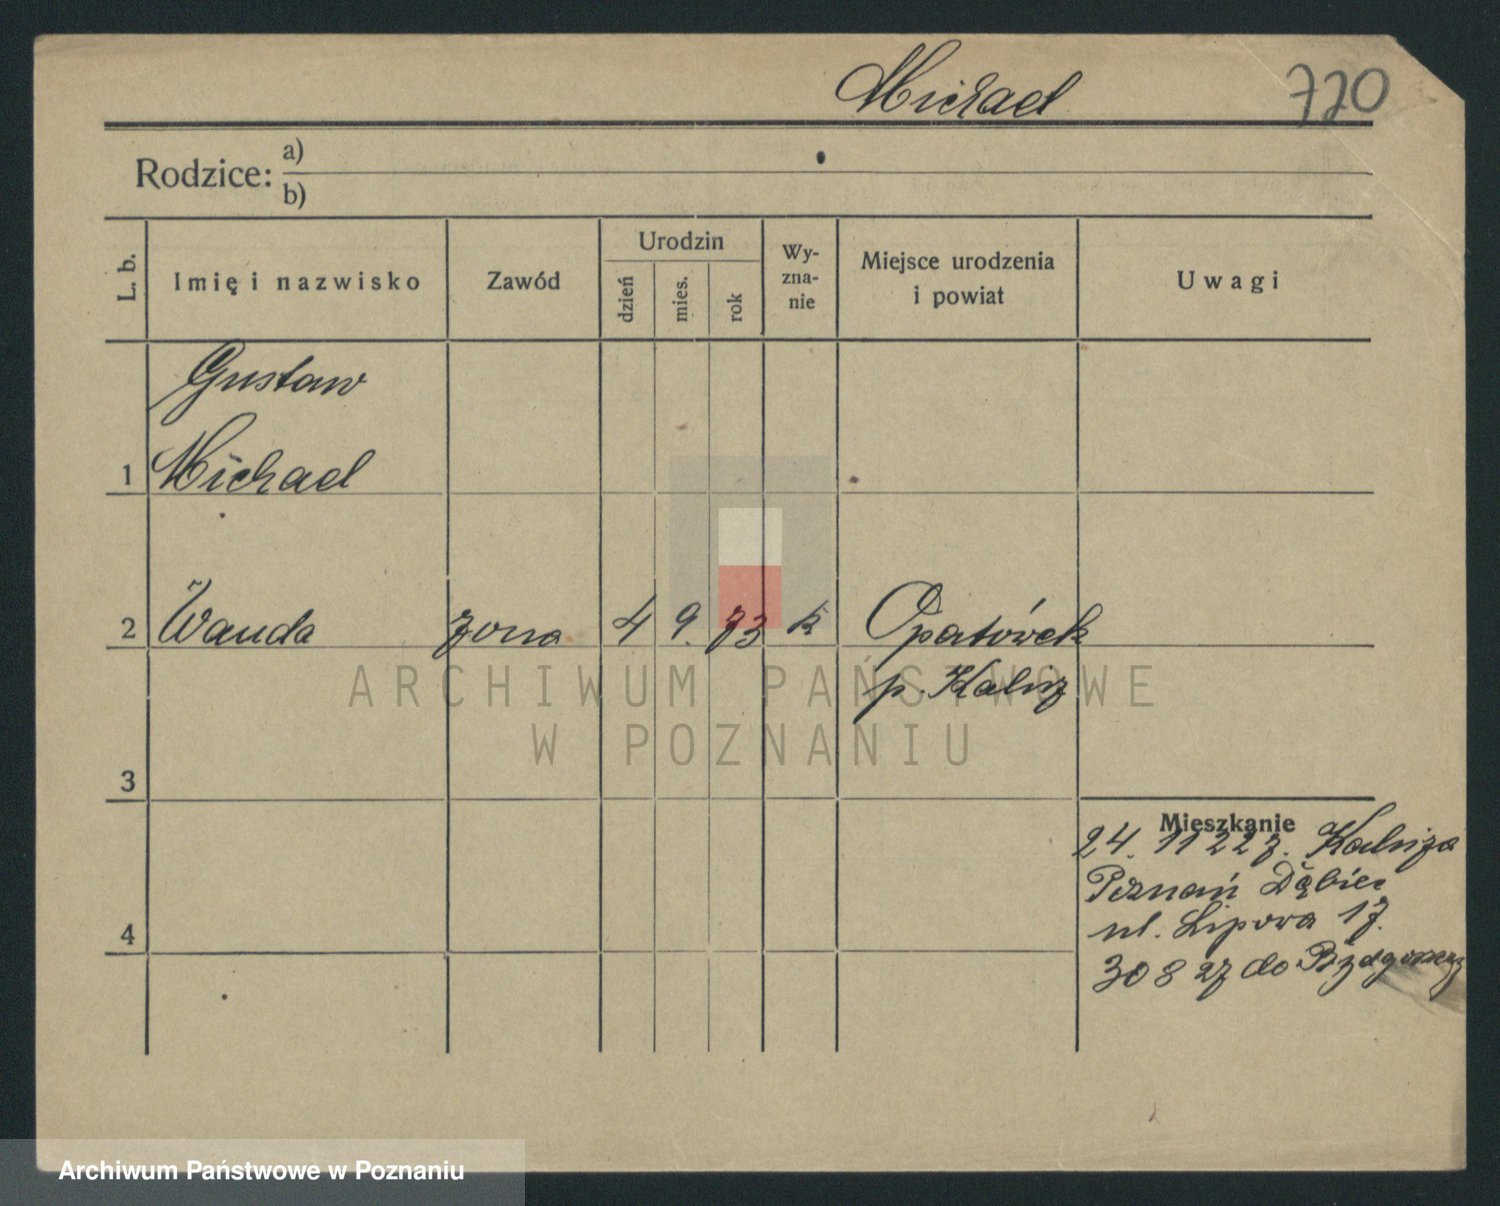 Michael
720
Rodzice: a)
b)
L. b.
Imię i nazwisko
Zawód
Urodzin
dzień
mies.
rok
Wy-
zna-
nie
Miejsce urodzenia
i powiat
Uwagi
Gustaw
1 Michael
2 Wanda żona 4 9. 73 k Opatówek
p. Kalisz
ARCHIWUM PAŃSTWOWE
W POZNANIU
3
Mieszkanie
24. 11 22 z. Kalisza
Poznań Dębiec
ul. Lipowa 17.
4
30 8 27 do Bydgoszczy
Archiwum Państwowe w Poznaniu